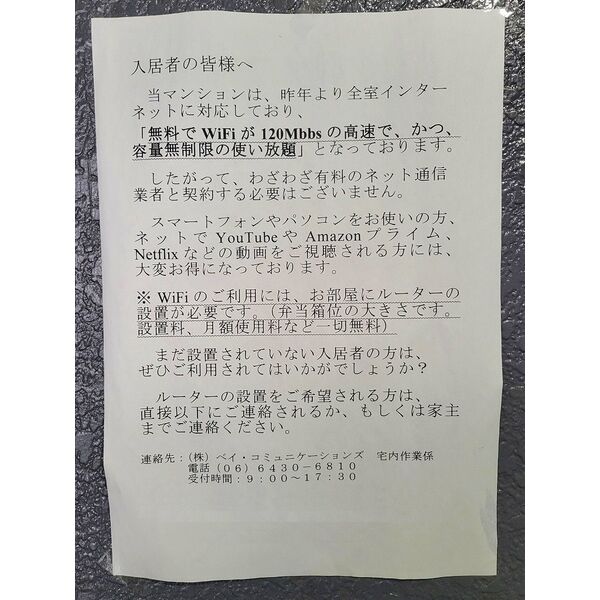 入居者の皆様へ
当マンションは、昨年より全室インター
ネットに対応しており、
「無料で WiFi が 120Mbbs の高速で、かつ、
容量無制限の使い放題」となっております。
したがって、わざわざ有料のネット通信
業者と契約する必要はございません。
スマートフォンやパソコンをお使いの方、
ネットで YouTube や Amazon プライム、
Netflix などの動画をご視聴される方には、
大変お得になっております。
※ WiFi のご利用には、お部屋にルーターの
設置が必要です。（弁当箱位の大きさです。
設置料、月額使用料など一切無料）
まだ設置されていない入居者の方は、
ぜひご利用されてはいかがでしょうか？
ルーターの設置をご希望される方は、
直接以下にご連絡されるか、もしくは家主
までご連絡ください。
連絡先：（株）ベイ・コミュニケーションズ　宅内作業係
電話（０６）６４３０－６８１０
受付時間：９：００～１７：３０